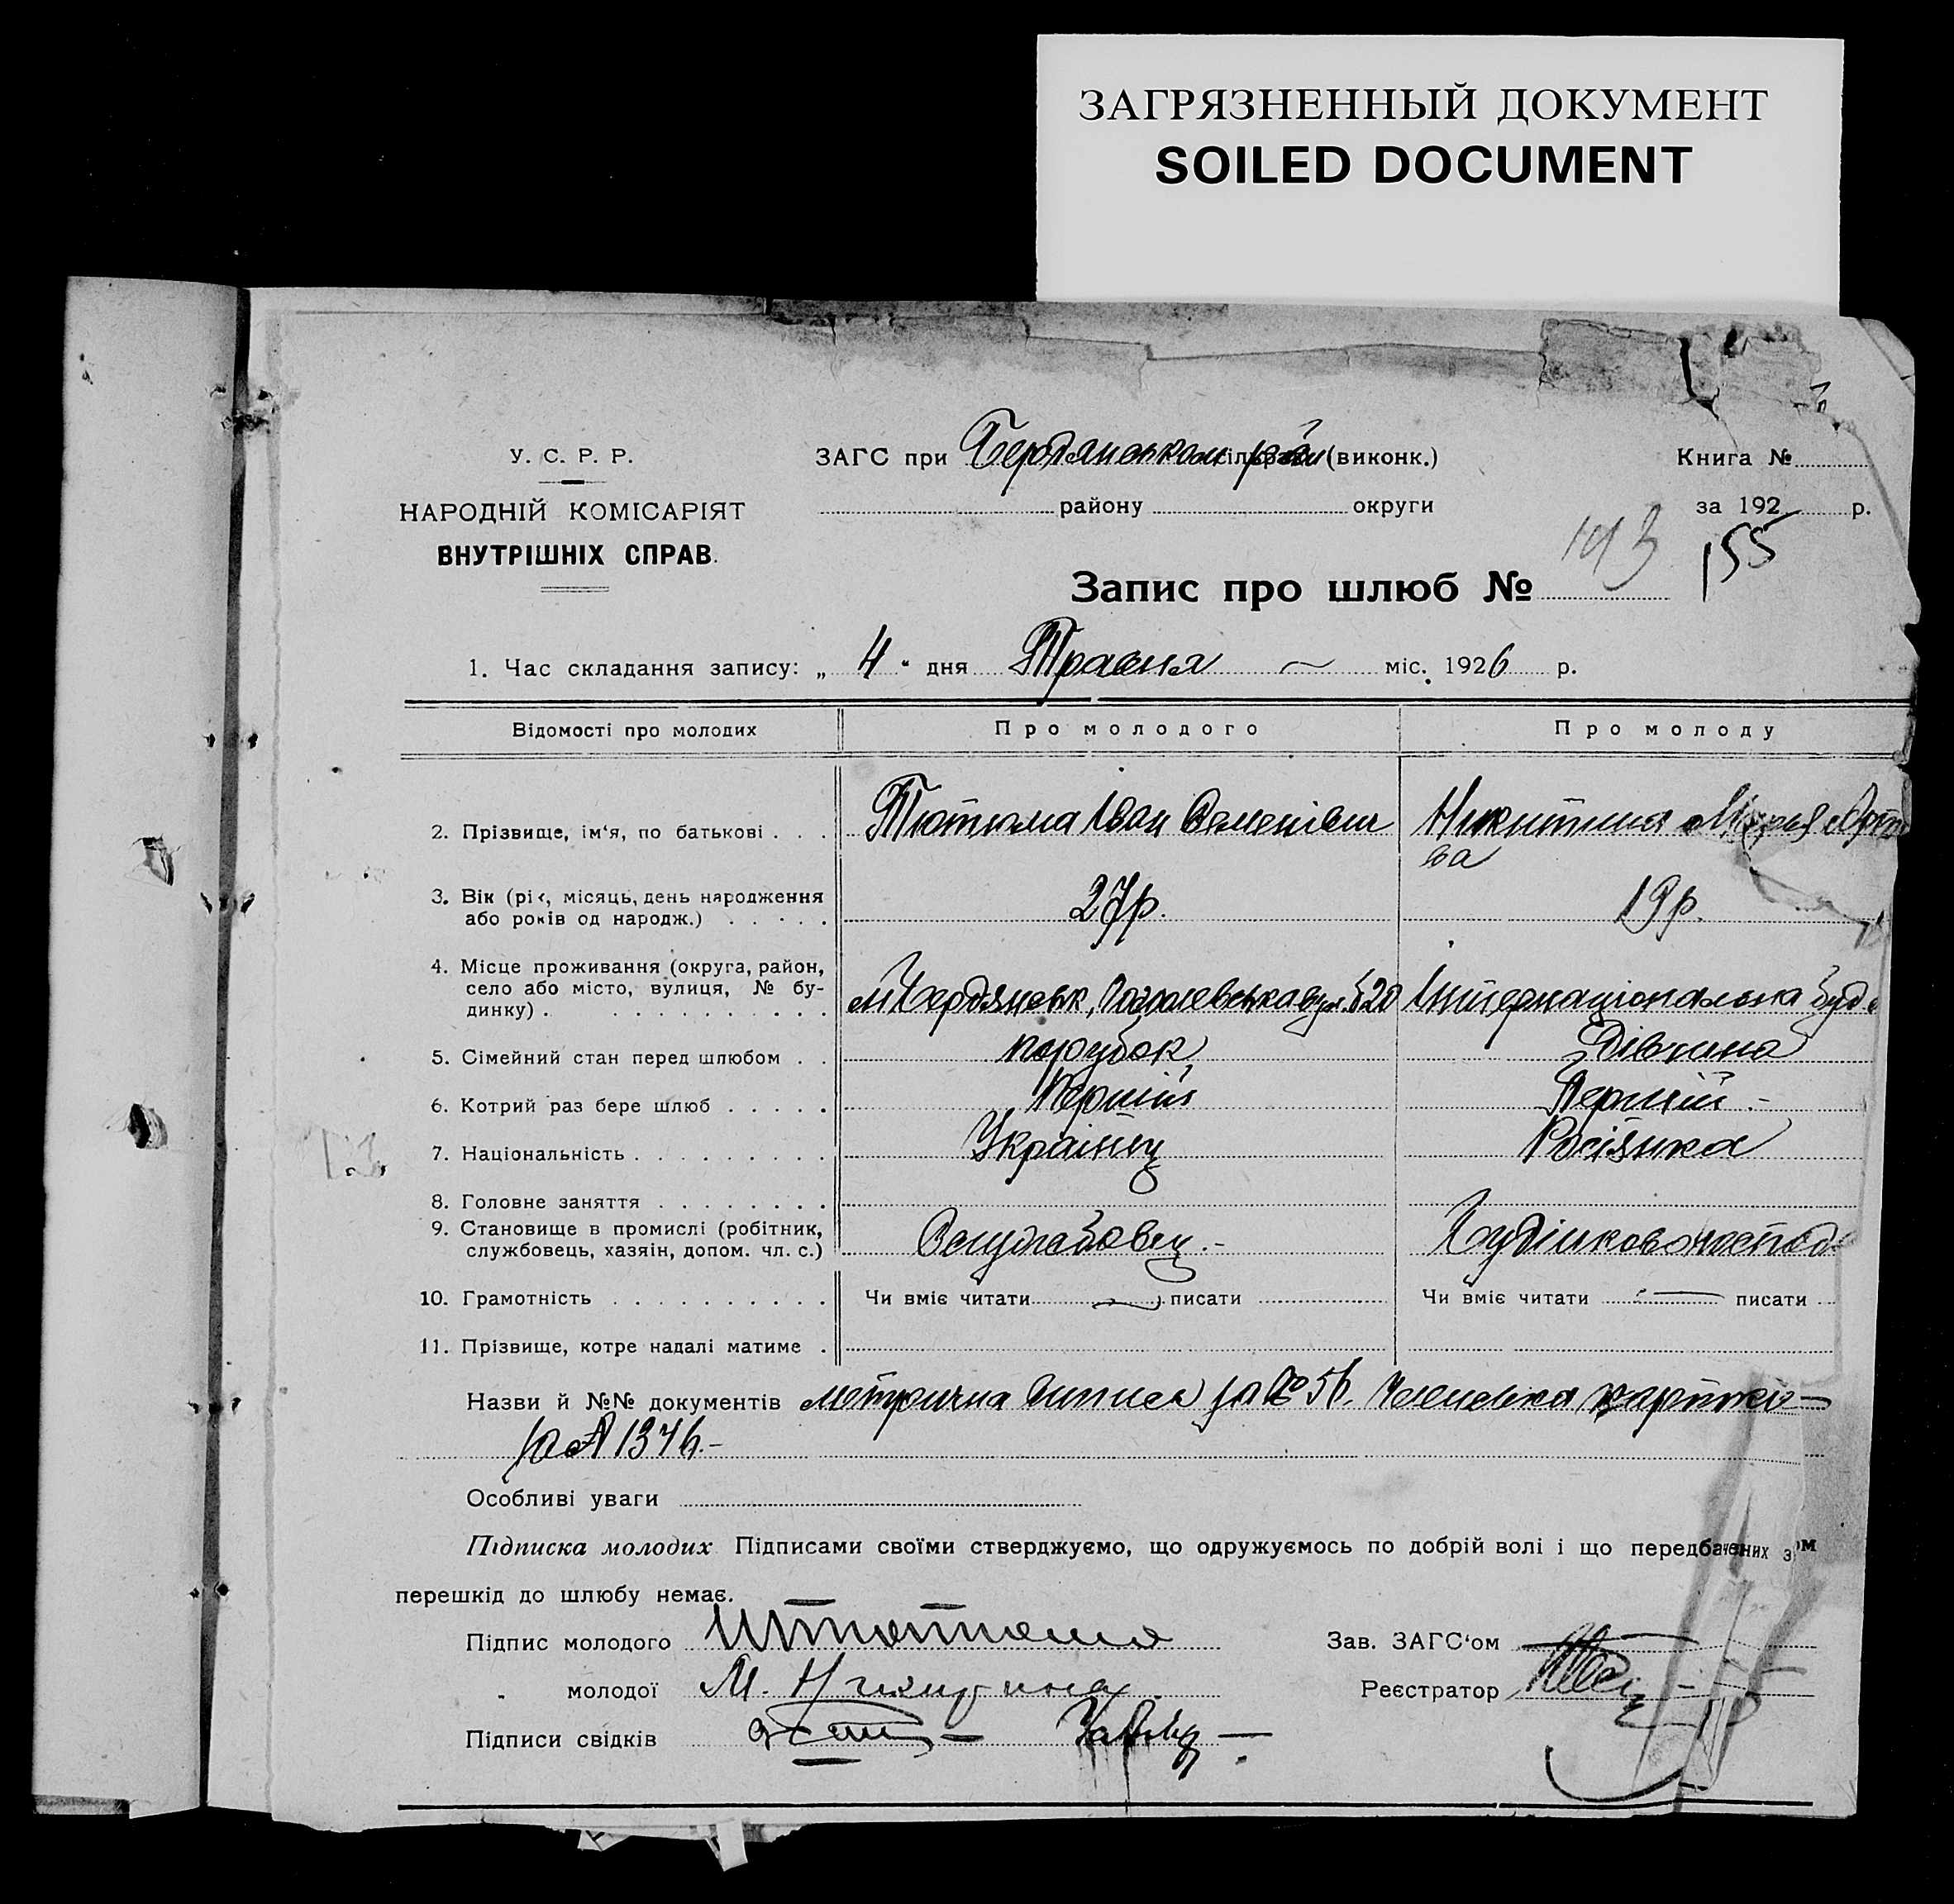 ЗАГРЯЗНЕННЫЙ ДОКУМЕНТ
SOILED DOCUMENT
У. С. Р. Р.
НАРОДНІЙ КОМІСАРІЯТ
ВНУТРІШНІХ СПРАВ.
ЗАГС при Бердянськом рай (виконк.)
району округи
Книга №
за 192 р.
143 155
Запис про шлюб №
1. Час складання запису: „ 4 " дня Травня міс. 1926 р.
Відомості про молодих Про молодого Про молоду
2. Прізвище, ім'я, по батькові . . . Тютюма Іван Семенівич Никитина Марья
ва
3. Вік (рік, місяць, день народження
або років од народж.) . . . . . 27р. 19р.
4. Місце проживання (округа, район,
село або місто, вулиця, № бу-
динку) . . . . . . . . . . . м Бердянськ, вул. 520 Інтернаціональна буд.
5. Сімейний стан перед шлюбом . . парубок Дівчина
6. Котрий раз бере шлюб . . . . . Перший Перший.-
7. Національність . . . . . . . . . Українец Росіянка
8. Головне заняття . . . . . . . .
9. Становище в промислі (робітник,
службовець, хазяїн, допом. чл. с.) Служабовец.-
10. Грамотність . . . . . . . . . . Чи вміє читати писати Чи вміє читати писати
11. Прізвище, котре надалі матиме .
Назви й №№ документів метрична виписка за № 56. Членська картка
за № 1346.-
Особливі уваги
Підписка молодих Підписами своїми стверджуємо, що одружуємось по добрій волі і що передбачених з ом
перешкід до шлюбу немає.
Підпис молодого ИТютюма Зав. ЗАГС'ом
" молодої М. Никитина Реєстратор
Підписи свідків